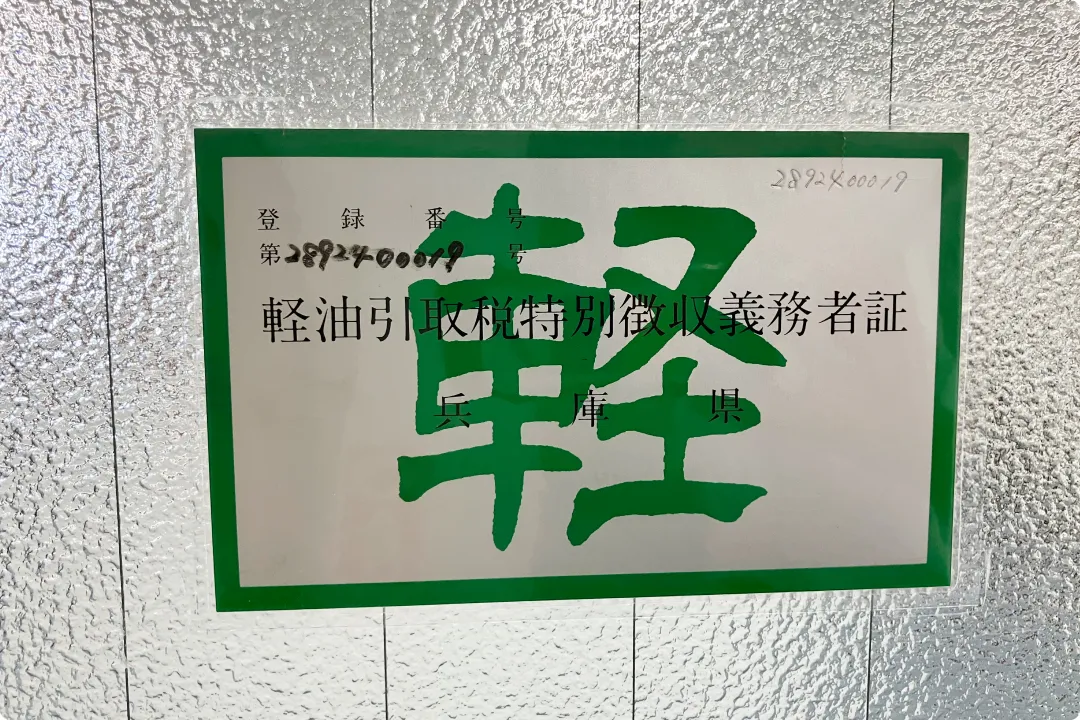 2892400019
登録番号
第2892400019号
軽油引取税特別徴収義務者証
兵庫県
軽